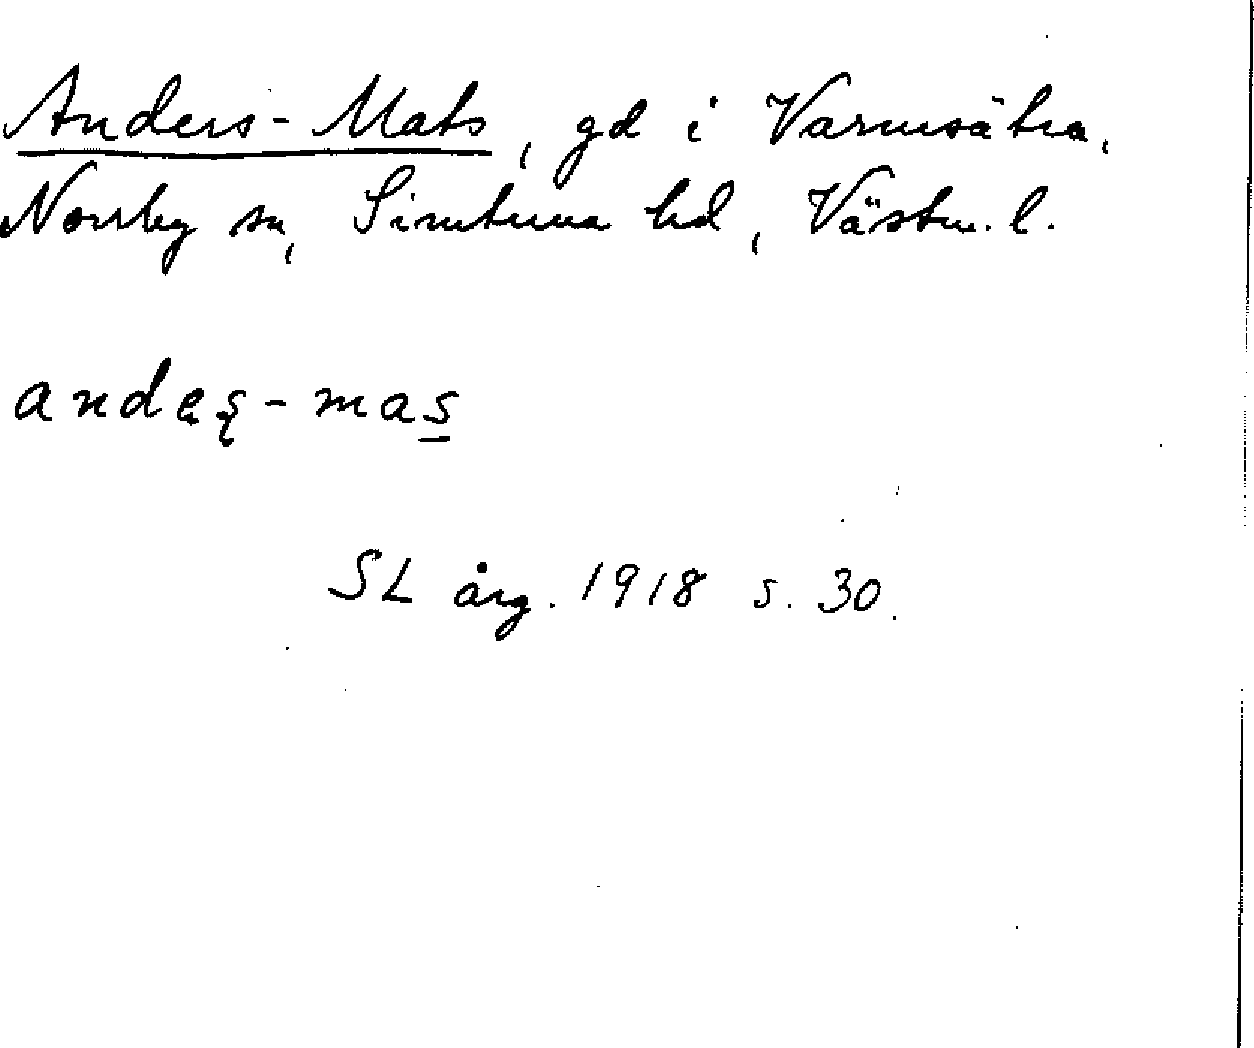 Anders-Mats, gd i Varmsätra,
Norrby sn, Simtuna hd, Västm. l.
andes-mas
SL årg. 1918 s. 30.